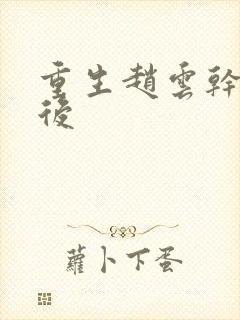 重生趙雲幹
後
蘿卜下蛋